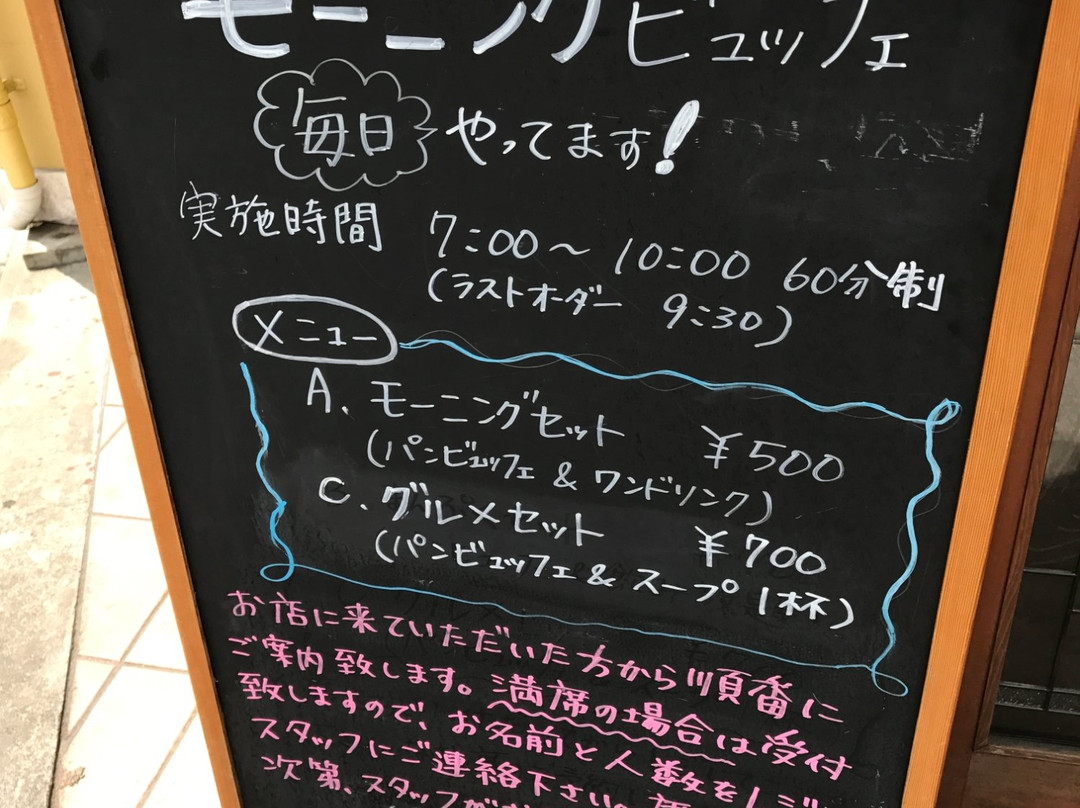 モーニングビュッフェ
毎日 やってます!
実施時間 7:00〜10:00 60分制
(ラストオーダー 9:30)
メニュー
A. モーニングセット ¥500
(パンビュッフェ & ワンドリンク)
C. グルメセット ¥700
(パンビュッフェ & スープ1杯)
お店に来ていただいた方から順番に
ご案内致します。満席の場合は受付
致しますので、お名前と人数を
スタッフにご連絡下さい。
次第、スタッフが